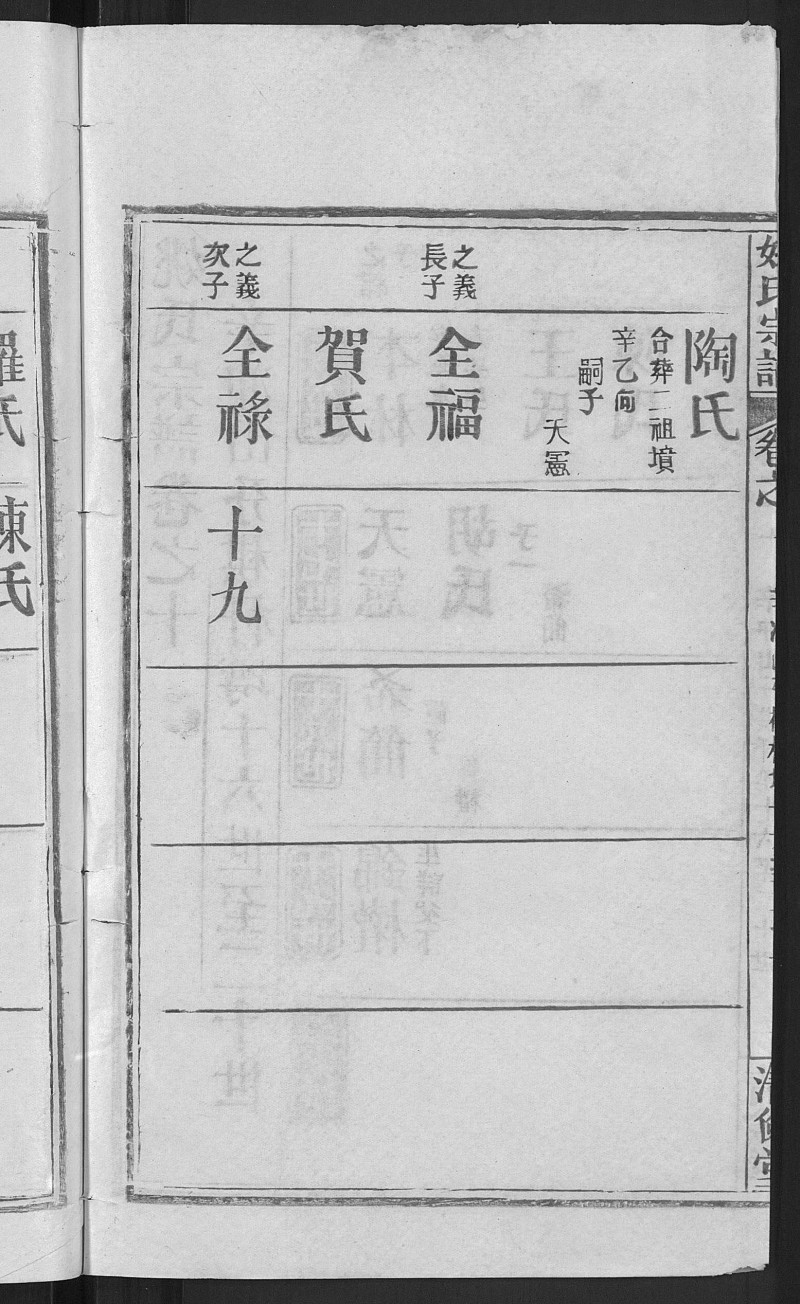 姚氏宗譜
卷之
陶氏
合葬二祖墳
辛乙向
嗣子
天憲
之義
長子
全福
賀氏
之義
次子
全祿
十九
羅氏
陳氏